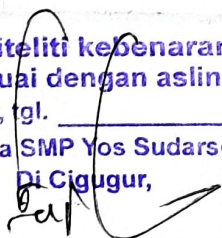 iteliti kebenaran
uai dengan aslin
, tgl.
a SMP Yos Sudars
Di Cigugur,